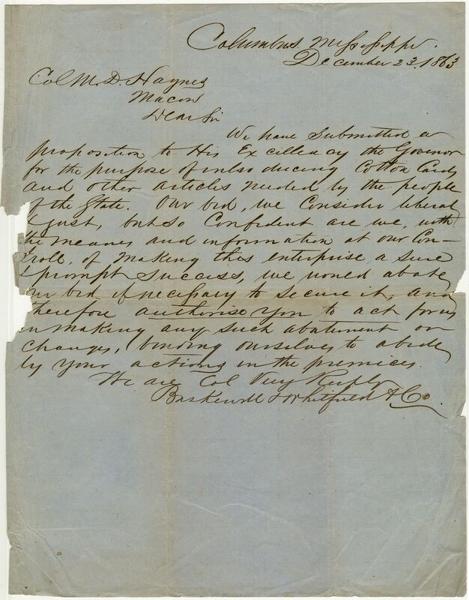 Columbus Mississippi.
December 23. 1863
Col M. D. Haynes
Macon
Dear Sir
We have submitted a
proposition to His Excellency the Governor
for the purpose of introducing Cotton Cards
and other articles needed by the people
of the State. Our bid, we consider liberal
& just, but so Confident are we, with
the means and information at our Con-
troll, of making this enterprise a sure
& prompt success, we would abate
our bid if necessary to secure it, and
therefore authorise you to act for us
in making any such abatement or
changes, binding ourselves to abide
by your actions in the premises.
We are Col Very Respfy
Baskerville Whitfield & Co.